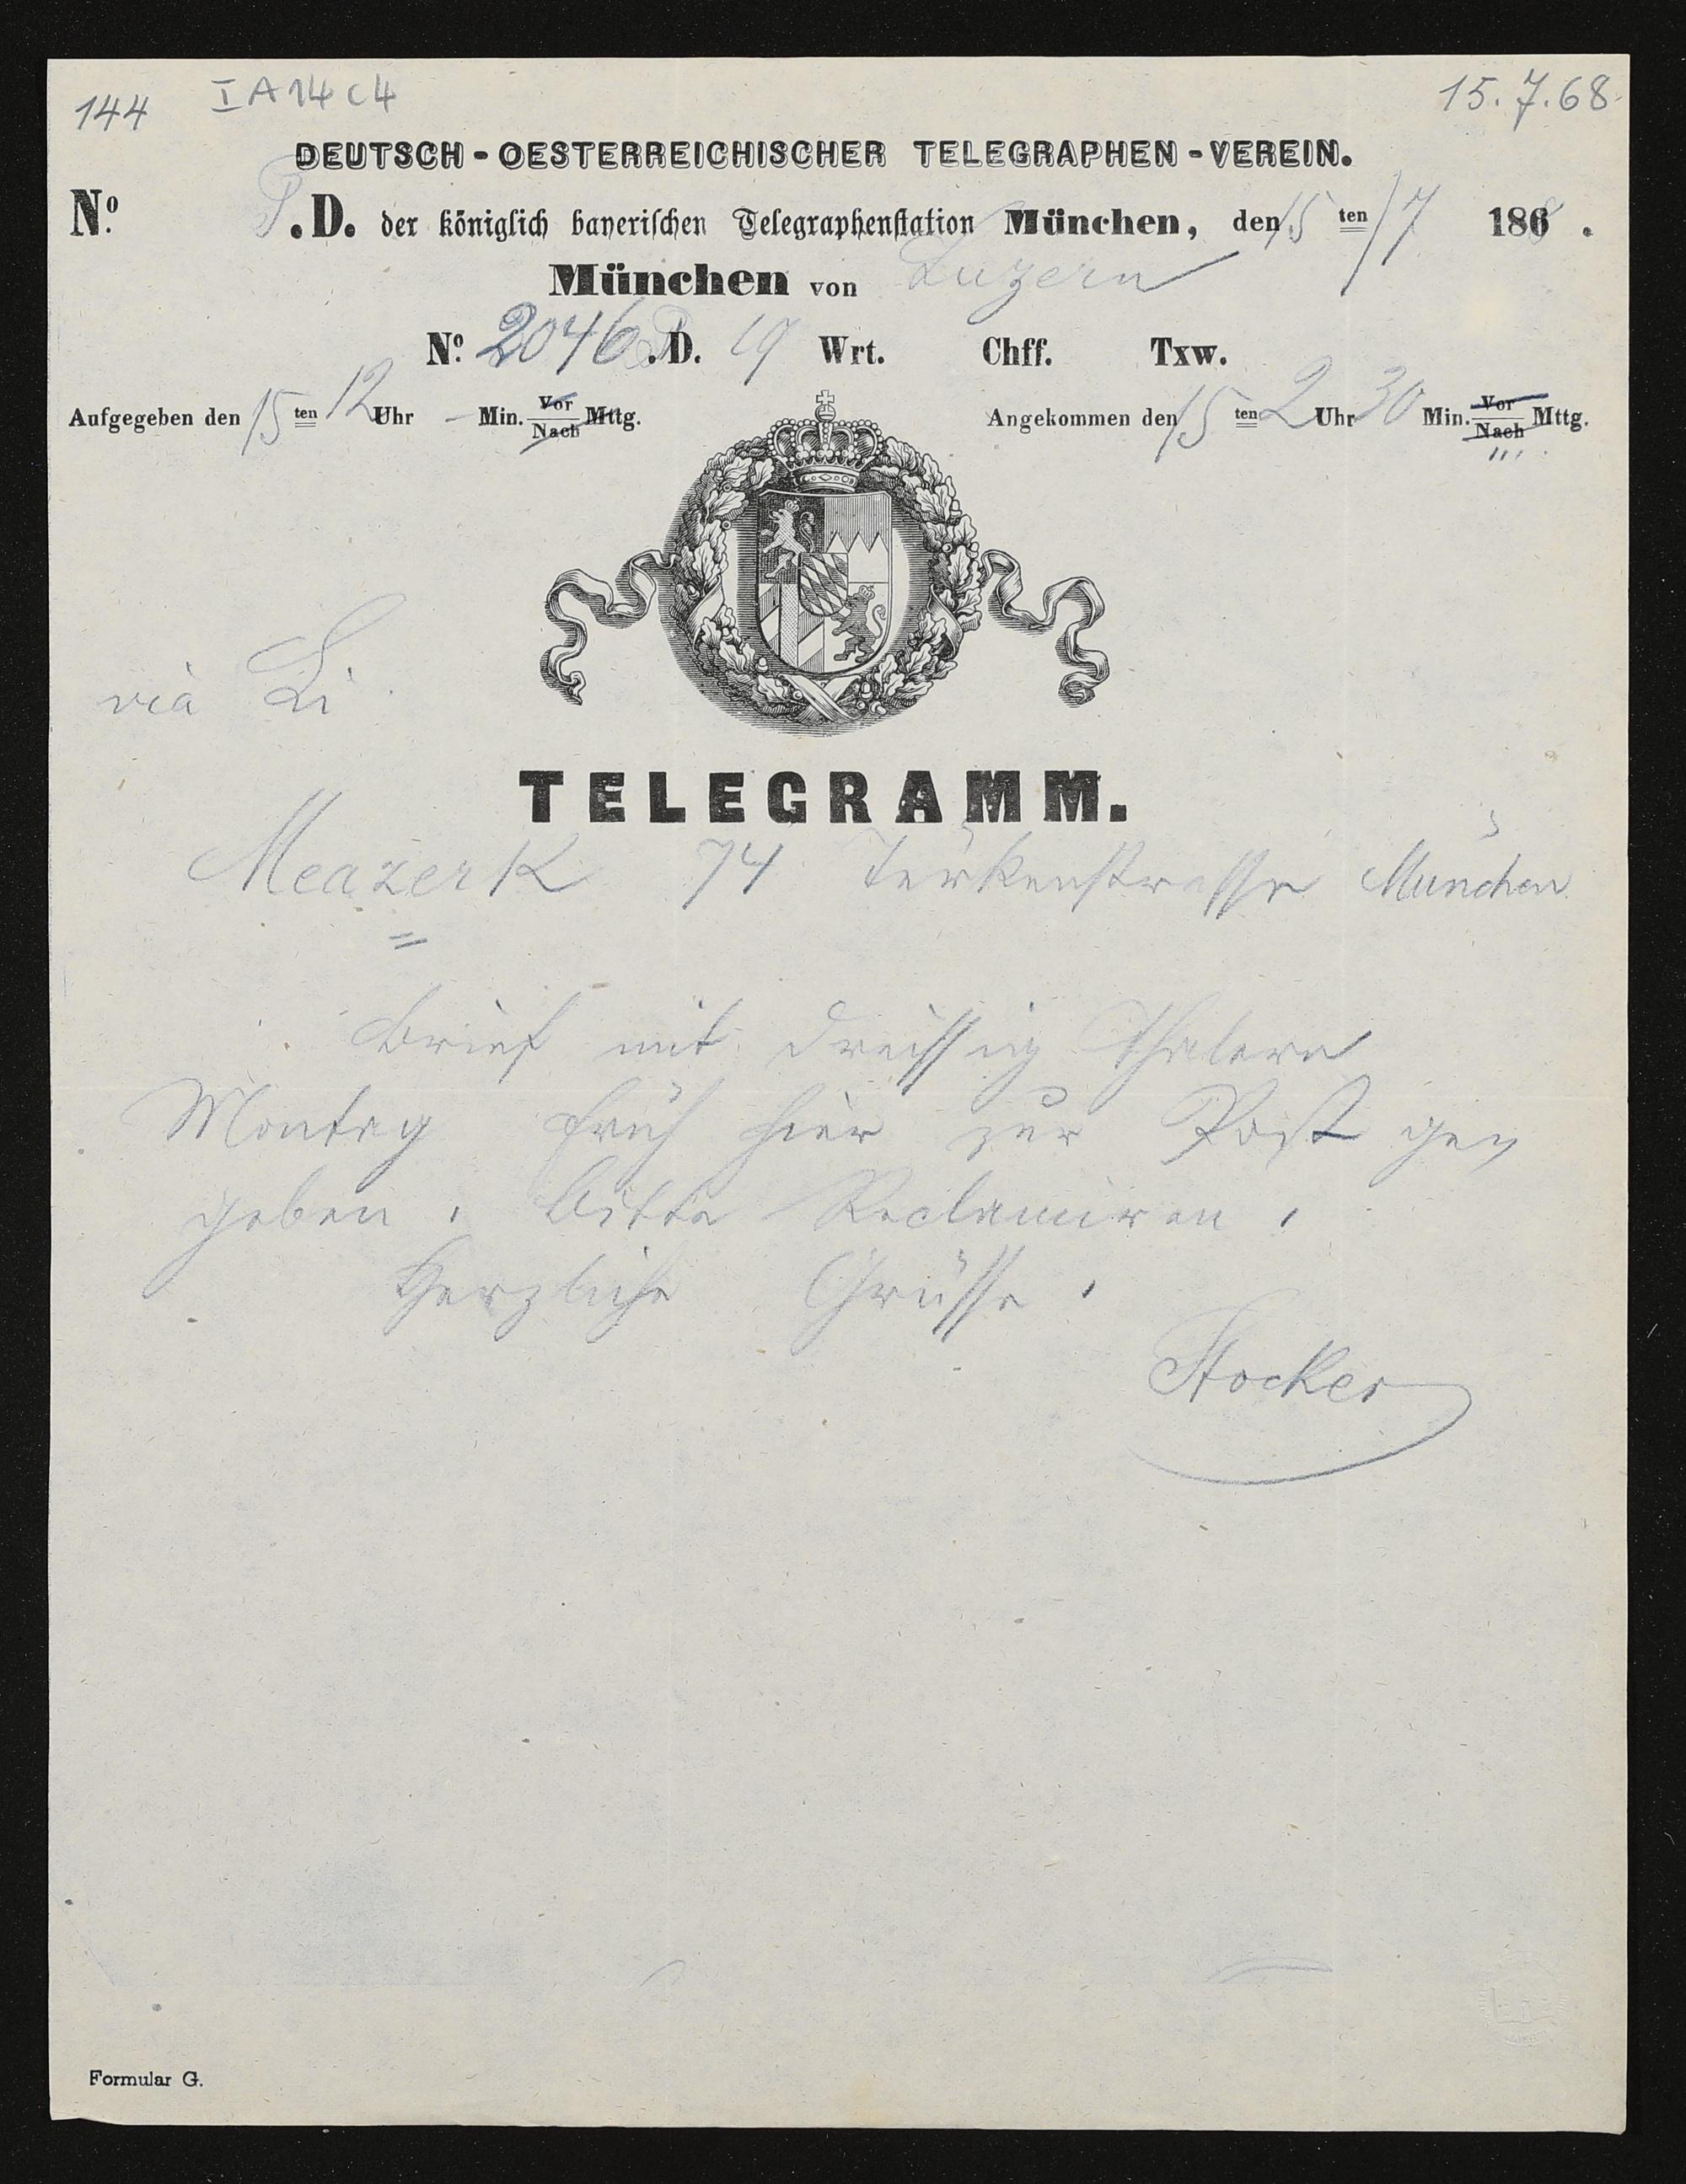 144 I A 14 c 4 15.7.68
DEUTSCH-OESTERREICHISCHER TELEGRAPHEN-VEREIN.
No. P.D. der königlich bayerischen Telegraphenstation München, den 15 ten /7 1868.
München von Luzern
No. 2046 P.D. 19 Wrt. Chff. Txw.
Aufgegeben den 15 ten 12 Uhr – Min. Vor/Nach Mttg. Angekommen den 15 ten 2 Uhr 30 Min. Vor/Nach Mttg.
via Li
TELEGRAMM.
Meazerk 74 Türkenstrasse München
Brief mit dreissig Thalern
Montag früh hier zur Post ge,,
geben. Bitte Reclamiren.
Herzliche Grüsse.
Stocker
Formular G.